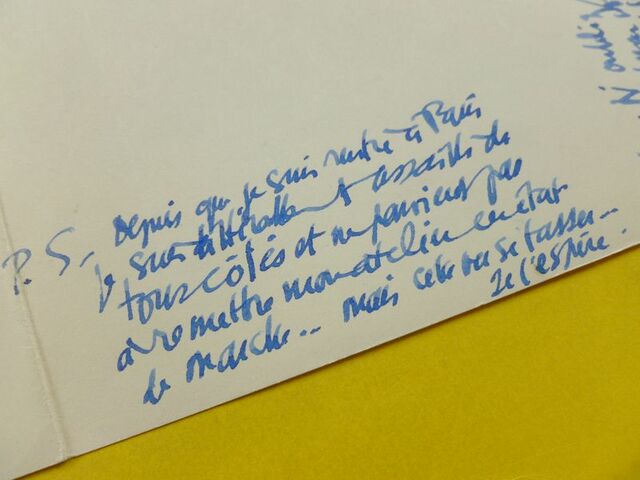 P.S. Depuis que je suis rentré à Paris
je suis littéralement assailli de
tous côtés et ne parviens pas
à remettre mon atelier en état
de marche... mais cela va se tasser...
je l'espère.
N'oubli